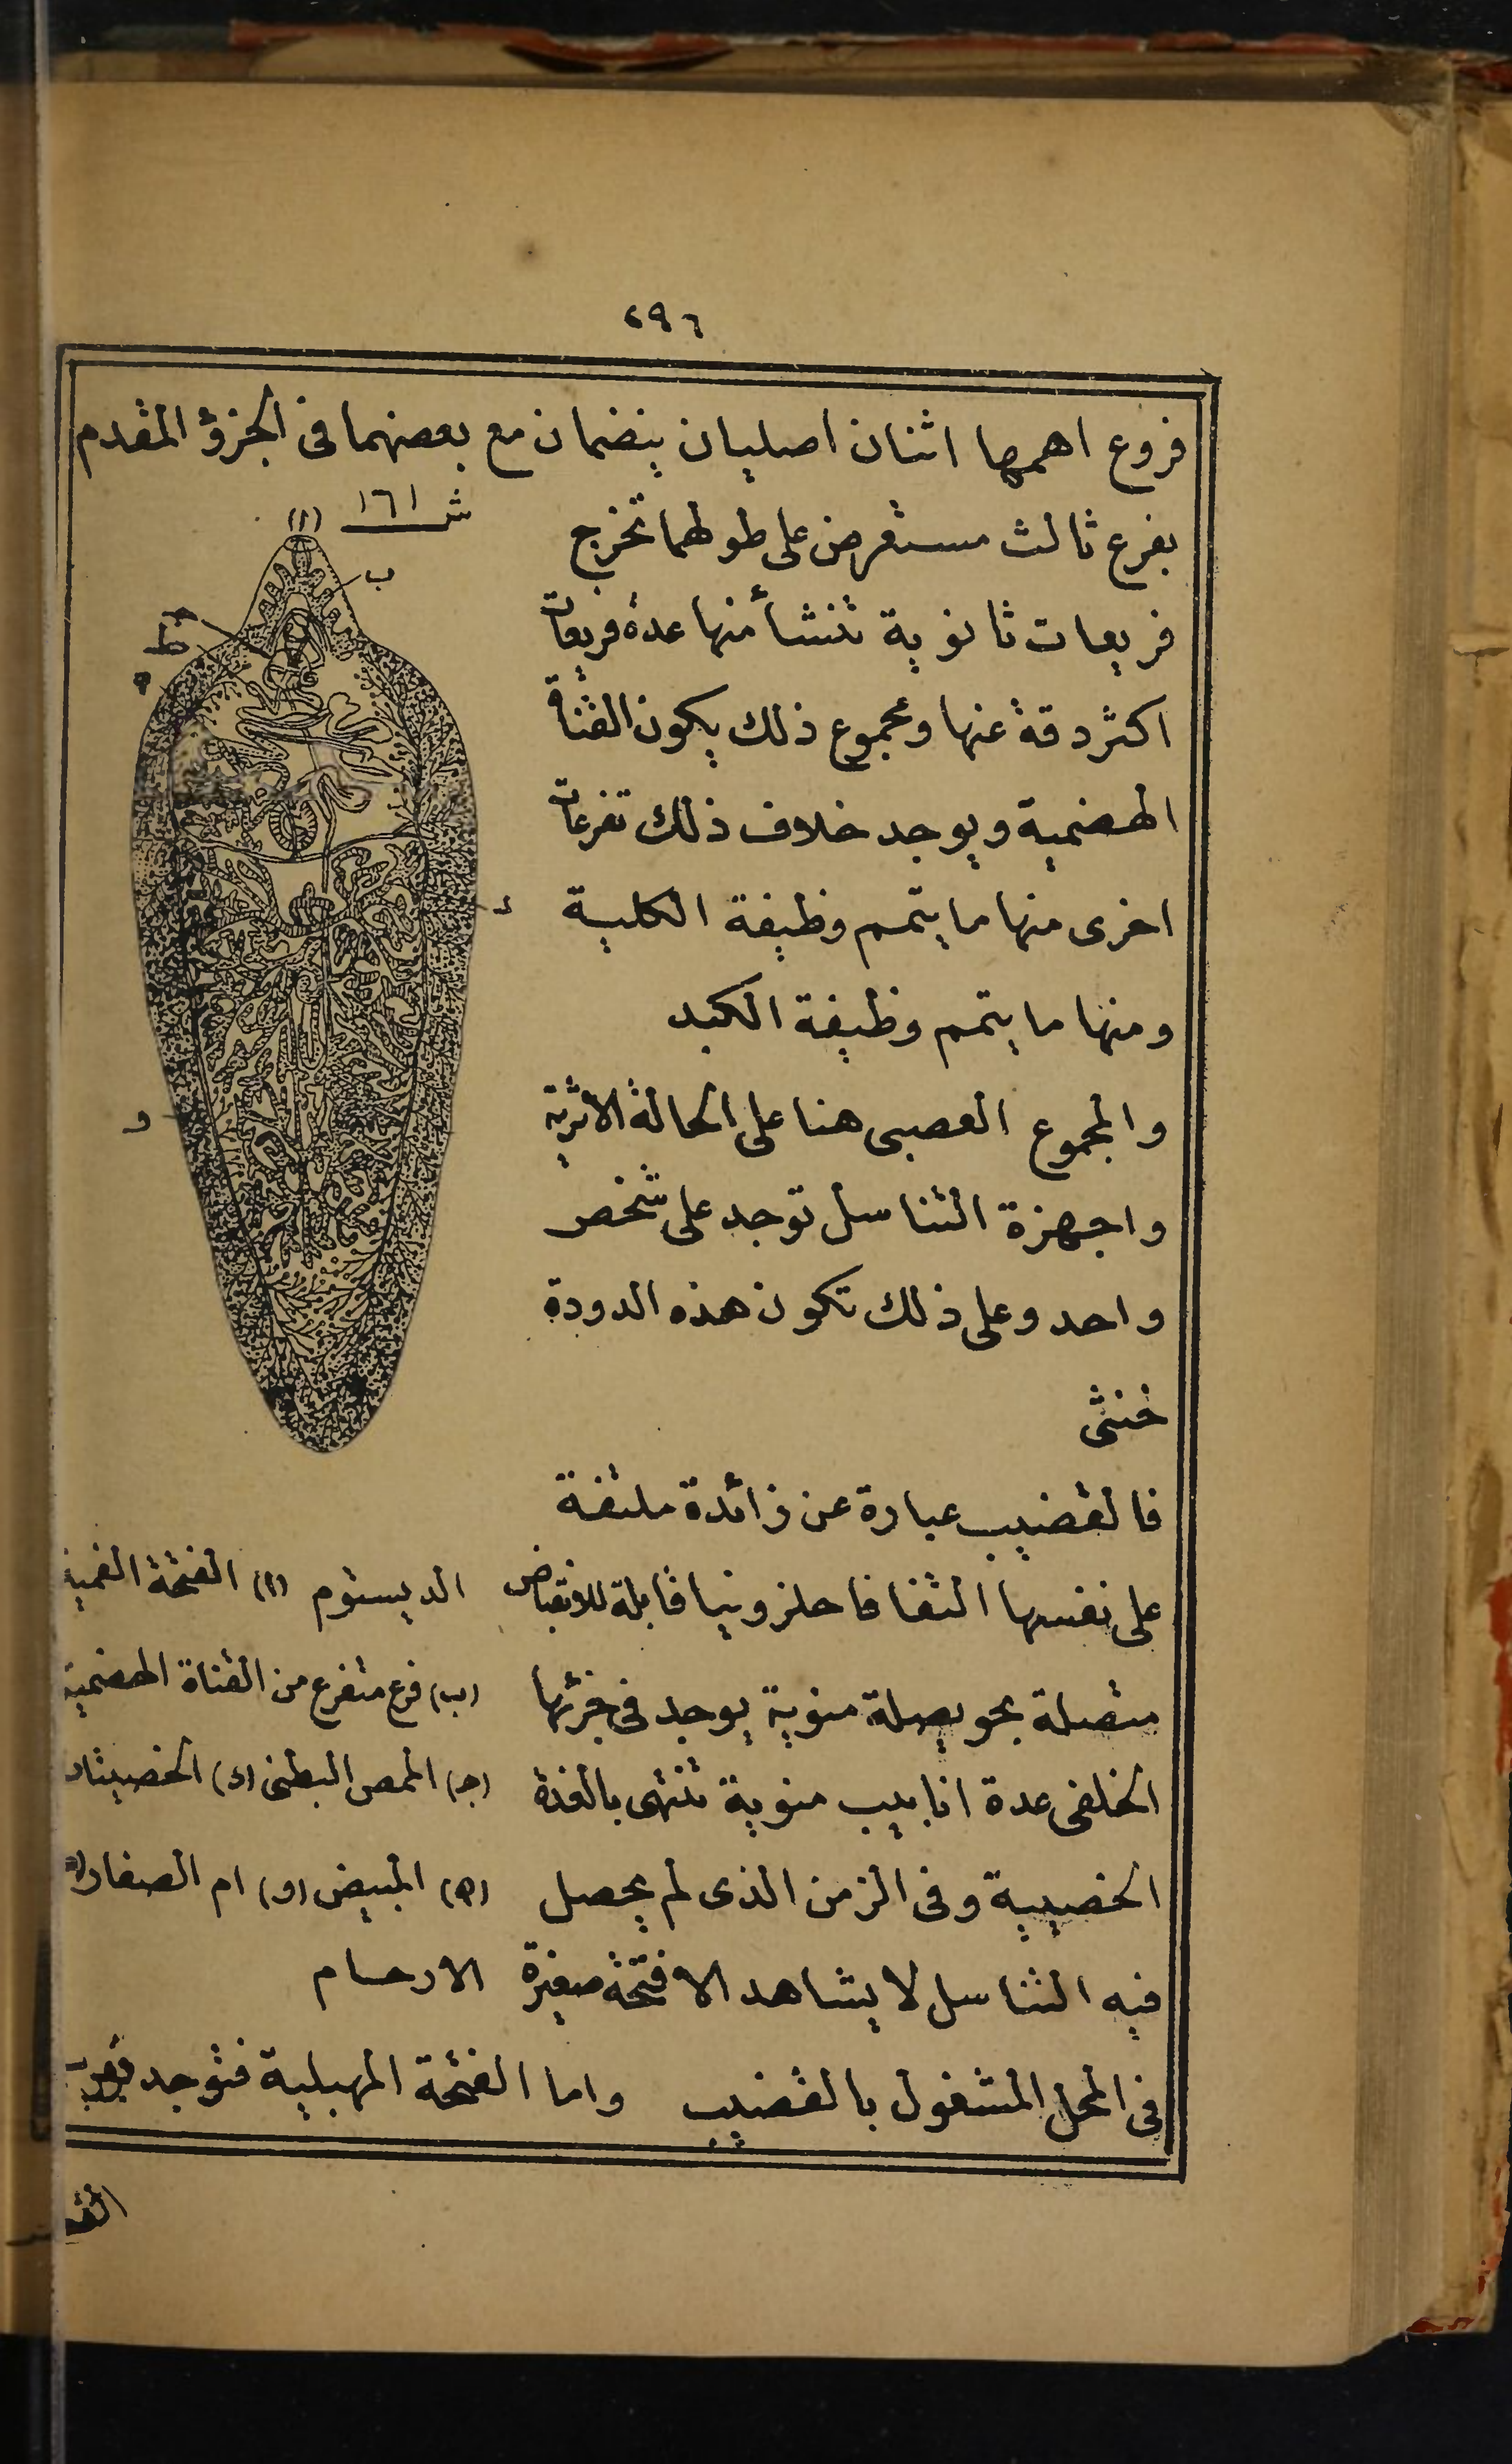 ٢٩٦
فروع اهمها اثنان اصليان ينضمان مع بعضهما فى الجزؤ المقدم
بفرع ثالث مستعرض على طولهما تخرج
فريعات ثانوية تنشأ منها عدة فريعات
اكثر دقة عنها ومجموع ذلك يكون القناة
الهضمية ويوجد خلاف ذلك تفرعات
اخرى منها ما يتمم وظيفة الكلية
ومنها ما يتمم وظيفة الكبد
والمجموع العصبى هنا على الحالة الاثرية
واجهزة التناسل توجد على شخص
واحد وعلى ذلك تكون هذه الدودة
خنثى
فالقضيب عبارة عن زائدة ملتفة
على نفسها التفافا حلزونيا قابلة للانقباض
متصلة بحويصلة منوية يوجد فى جزئها
الخلفى عدة انابيب منوية تنتهى بالغدة
الخصيية وفى الزمن الذى لم يحصل
فيه التناسل لا يشاهد الا فتحة صغيرة
فى المحل المشغول بالقضيب واما الفتحة المهبلية فتوجد بقرب
ش ١٦١
(ا)
ب
ج
ط
ه
د
و
الديستوم (ا) الفتحة الفمية
(ب) فرع متفرع من القناة الهضمية
(ج) الممص البطنى (د) الخصيتان
(ه) المبيض (و) ام الصفار
الارحام